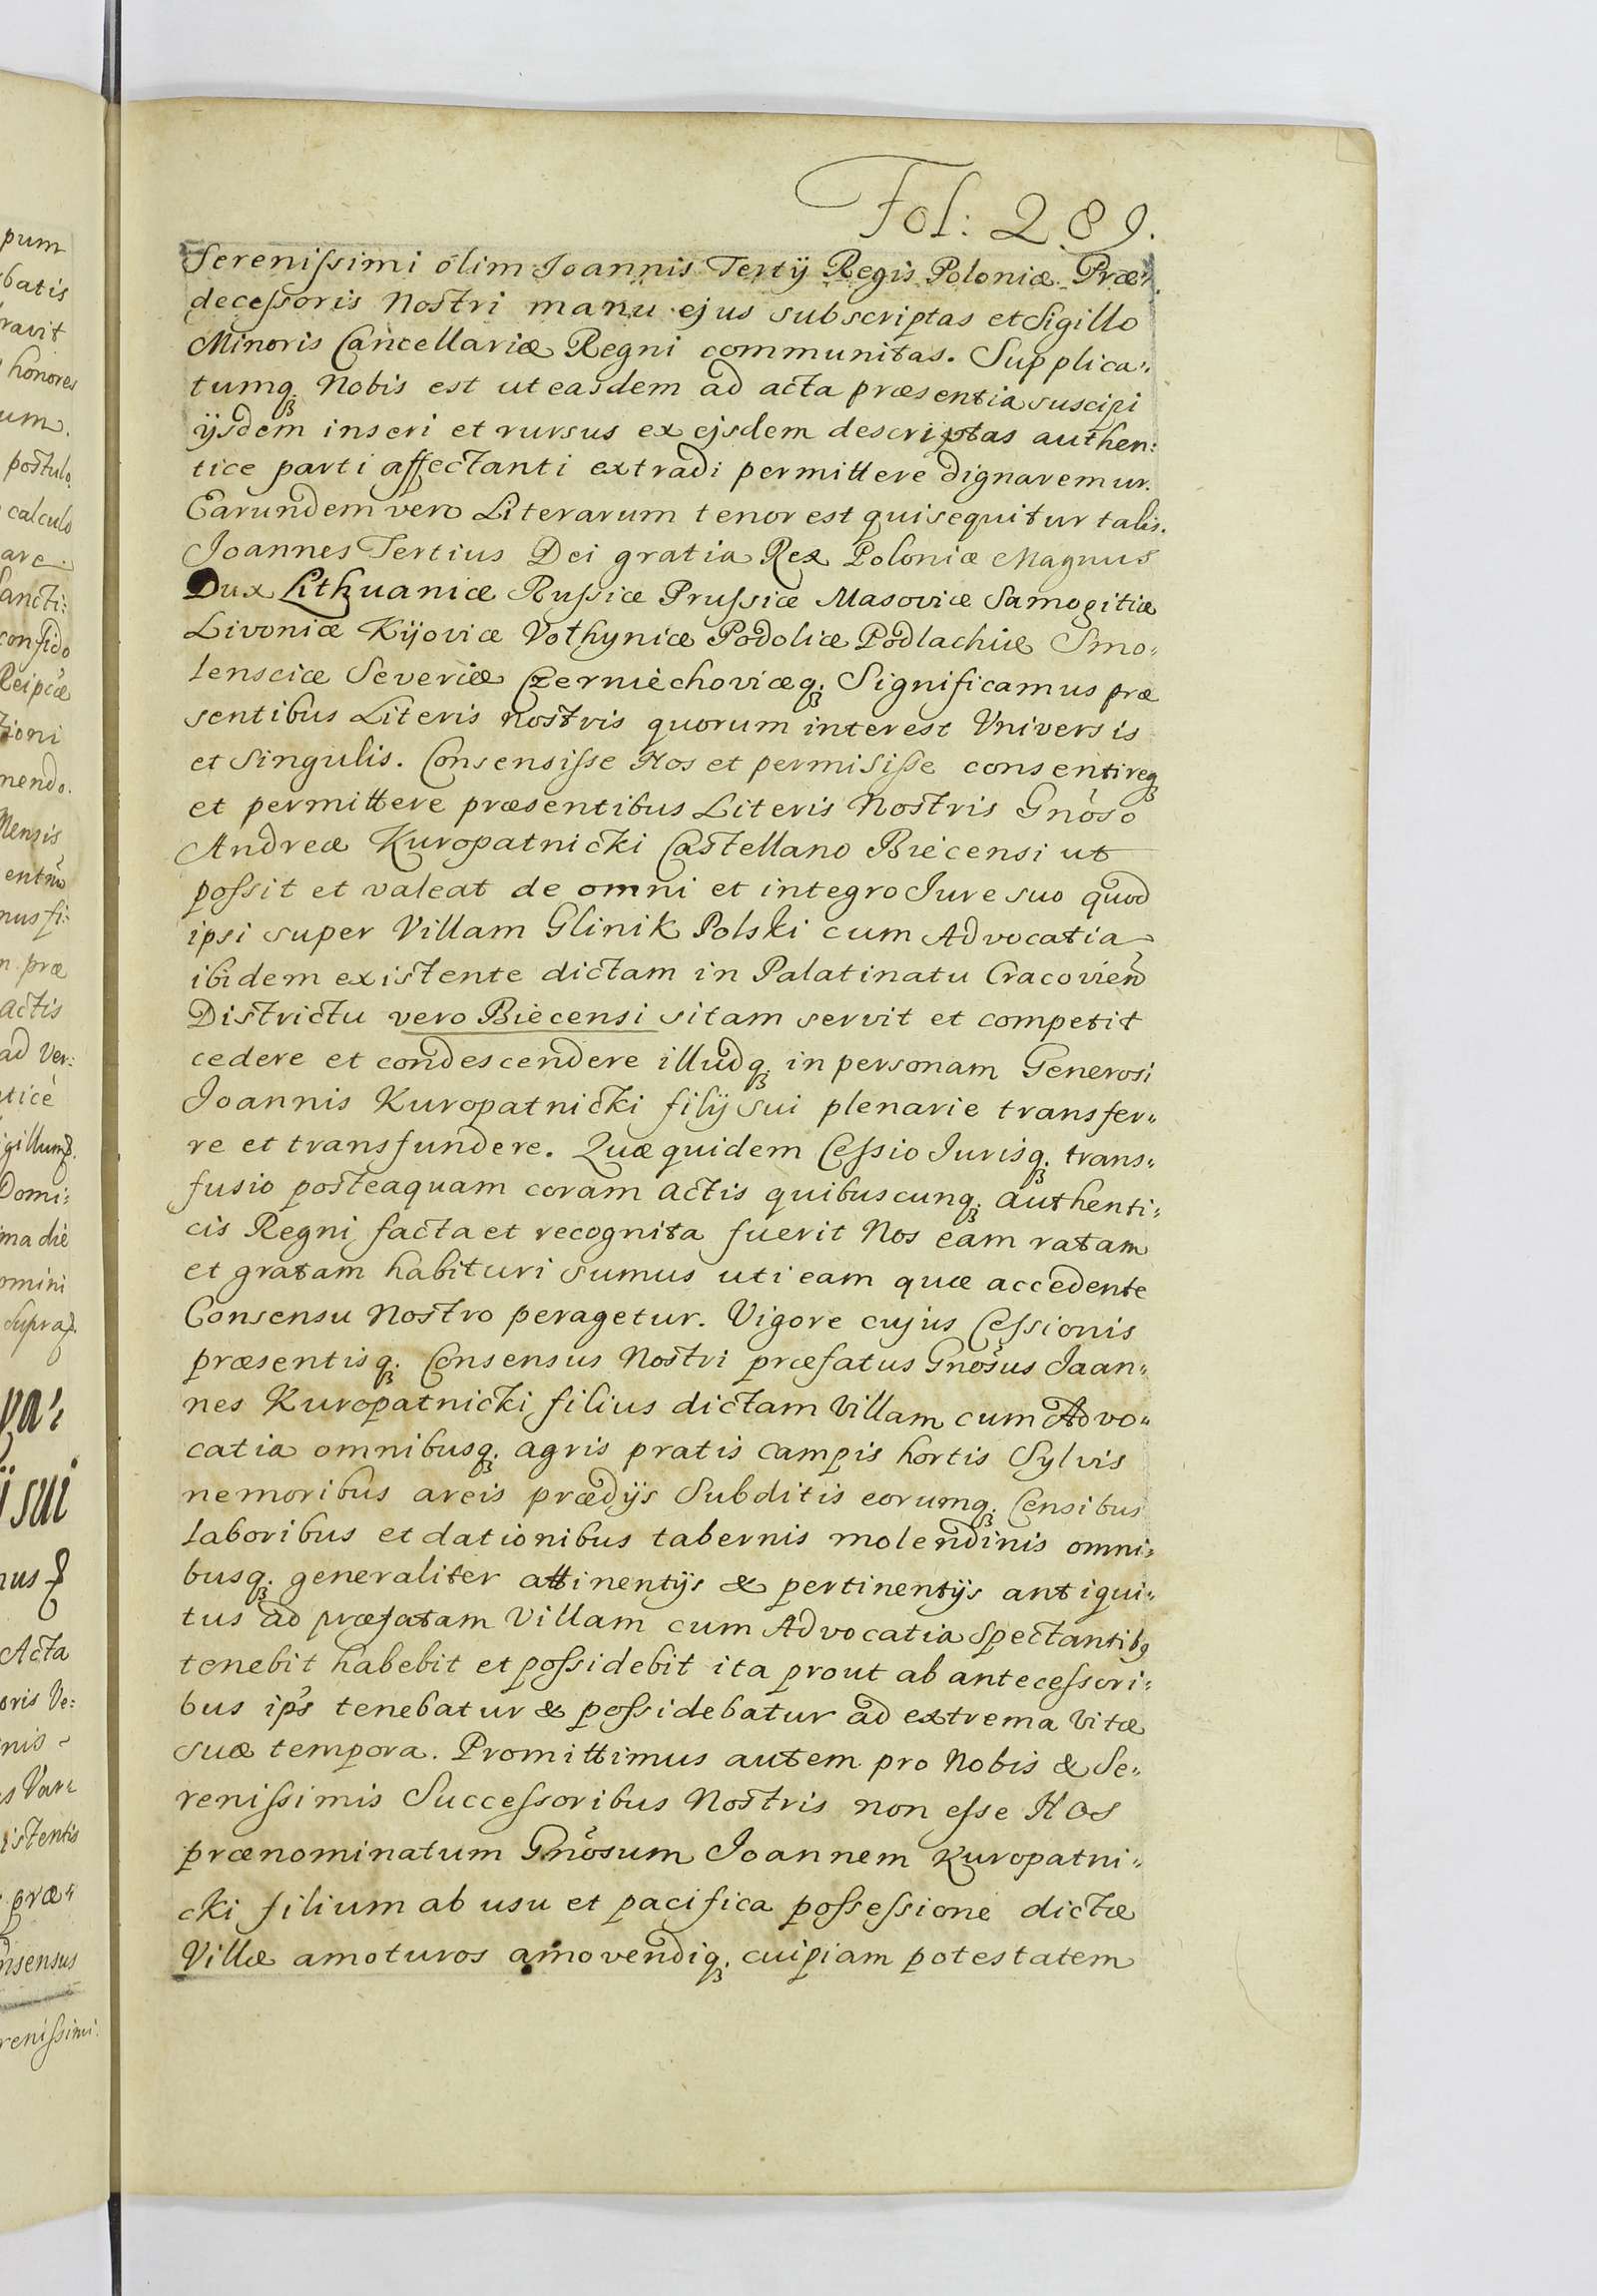 Fol: 289.
Serenissimi olim Joannis Tertÿ Regis Poloniæ Præ=
decessoris Nostri manu ejus subscriptas et Sigillo
Minoris Cancellariæ Regni communitas. Supplica=
tumq; Nobis est ut easdem ad acta præsentia suscipi
ÿsdem inseri et rursus ex ejsdem descriptas authen:
tice parti affectanti extradi permittere dignaremur.
Earundem vero Literarum tenor est qui sequitur talis.
Joannes Tertius Dei gratia Rex Poloniæ Magnus
Dux Lithuaniæ Russiæ Prussiæ Masoviæ Samogitiæ
Livoniæ Kijoviæ Volhyniæ Podoliæ Podlachiæ Smo=
lensciæ Severiæ Czerniechoviæq; Significamus præ
sentibus Literis nostris quorum interest Universis
et singulis. Consensisse Nos et permisisse consentireq;
et permittere præsentibus Literis Nostris Gnoso
Andreæ Kuropatnicki Castellano Biecensi ut
possit et valeat de omni et integro Jure suo quod
ipsi super Villam Glinik Polski cum Advocatia
ibidem existente dictam in Palatinatu Cracovien
Districtu vero Biecensi sitam servit et competit
cedere et condescendere illudq; in personam Generosi
Joannis Kuropatnicki filÿ sui plenarie transfer=
re et transfundere. Quæ quidem Cessio Jurisq; trans=
fusio posteaquam coram actis quibuscunq; authenti=
cis Regni facta et recognita fuerit Nos eam ratam
et gratam habituri sumus uti eam quæ accedente
Consensu Nostro peragetur. Vigore cujus Cessionis
præsentisq; Consensus Nostri præfatus Gnosus Jaan=
nes Kuropatnicki filius dictam Villam cum Advo=
catia omnibusq; agris pratis campis hortis Sylvis
nemoribus areis prædÿs Subditis eorumq; Censibus
laboribus et dationibus tabernis molendinis omni=
busq; generaliter attinentÿs & pertinentÿs antiqui=
tus ad præfatam Villam cum Advocatia spectantibꝰ
tenebit habebit et possidebit ita prout ab antecessori=
bus ips tenebatur & possidebatur ad extrema vitæ
suæ tempora. Promittimus autem pro Nobis & Se=
renissimis Successoribus Nostris non esse NOS
prænominatum Gnosum Joannem Kuropatni=
cki filium ab usu et pacifica possessione dictæ
Villæ amoturos amovendiq; cuipiam potestatem